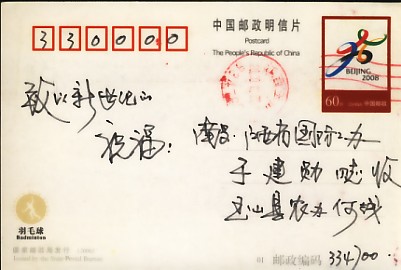 330000
中国邮政明信片
Postcard
The People's Republic of China
BEIJING 2008
60分 中国邮政
致以新世纪的
祝福：
南昌·江西省国防工办
于建勋同志收
玉山县农办何城
羽毛球
Badminton
国家邮政局发行
Issued by the State Postal Bureau
01 邮政编码 334700